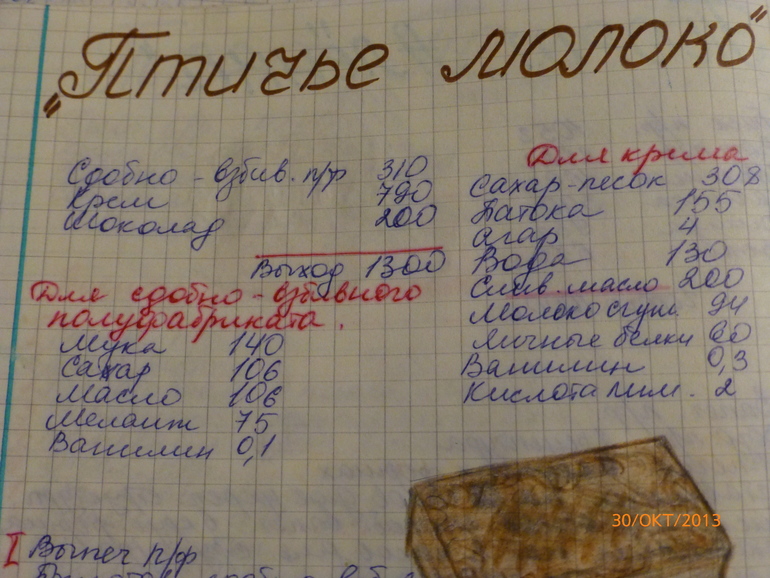 "Птичье молоко"
Сдобно-взбив. п/ф 310
Крем 790
Шоколад 200
Выход 1300
Для сдобно-взбивного
полуфабриката.
Мука 140
Сахар 106
Масло 106
Меланж 75
Ванилин 0,1
Для крема
Сахар-песок 308
Патока 155
Агар 4
Вода 130
Слив. масло 200
Молоко сгущ. 94
Яичные белки 60
Ванилин 0,3
Кислота лим. 2
30/ОКТ/2013
I Выпеч п/ф